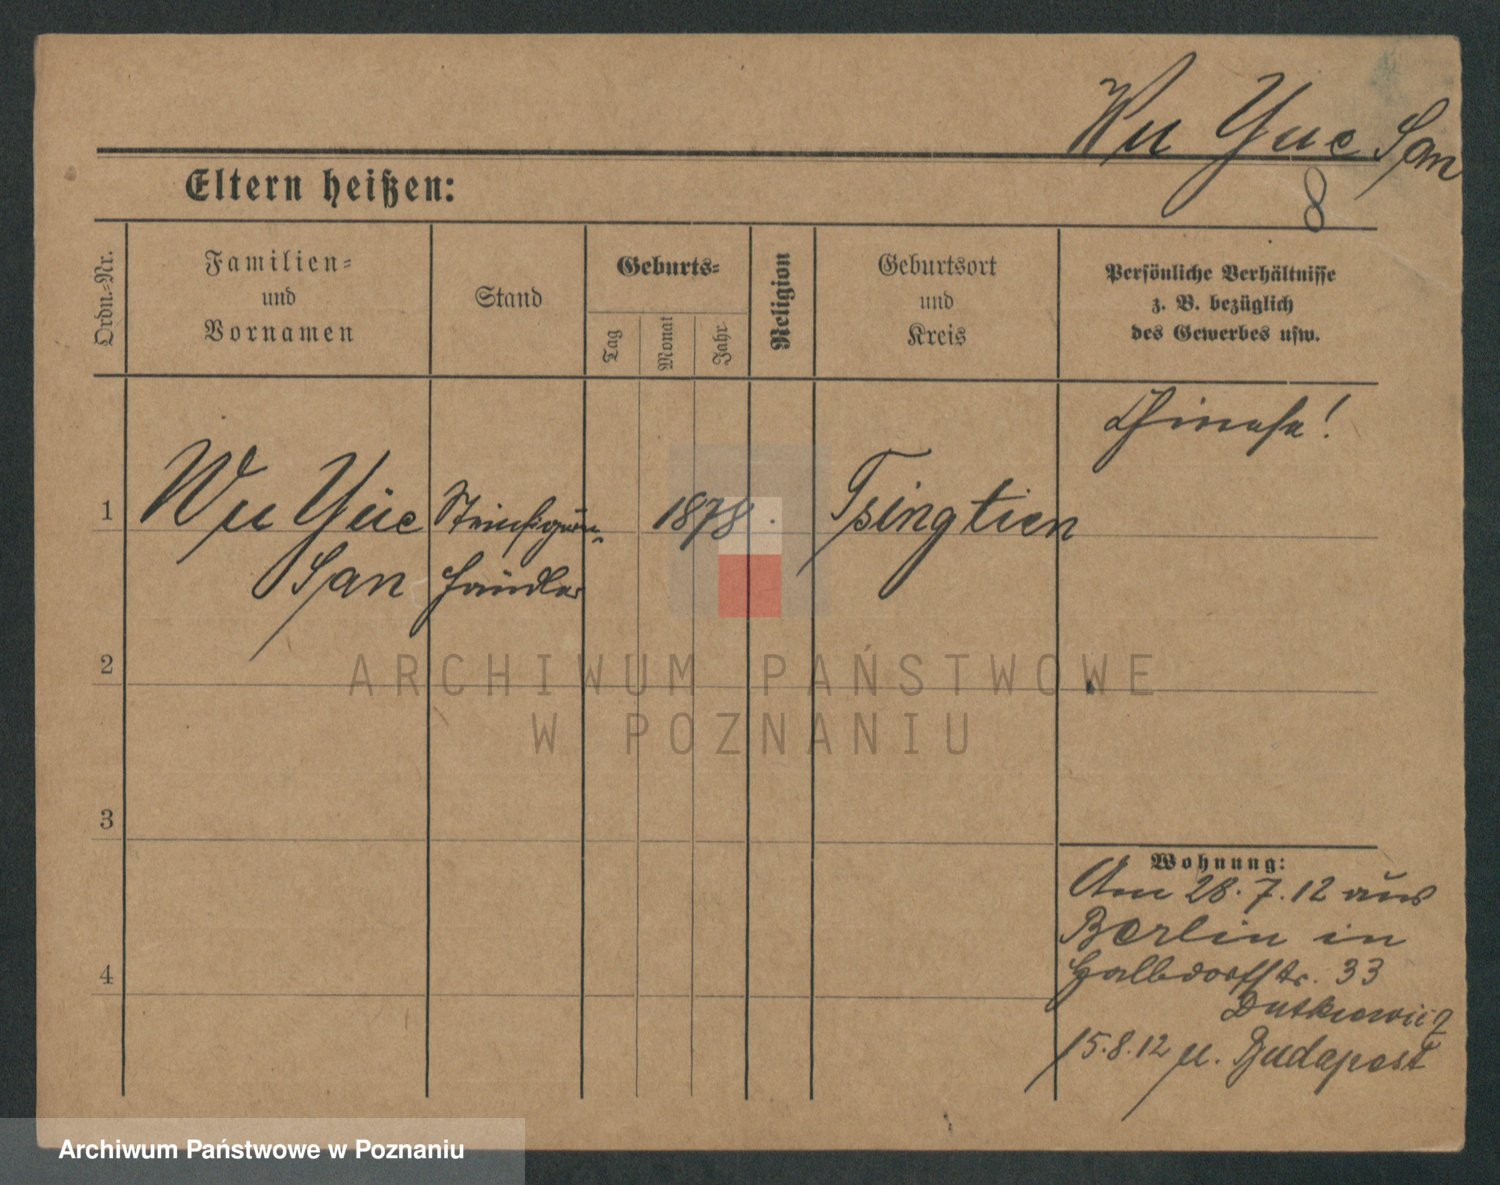 Wu Yue San
8
Eltern heißen:
Ordn.-Nr.
Familien-
und
Vornamen
Stand
Geburts-
Tag
Monat
Jahr
Religion
Geburtsort
und
Kreis
Persönliche Verhältnisse
z. B. bezüglich
des Gewerbes usw.
Chinese!
1
Wu Yüe
San
Steinfiguren-
händler
1878.
Tsingtien
2
3
4
Wohnung:
Am 28.7.12 aus
Berlin in
Halbdorfstr. 33
Dutkiewicz
15.8.12 n. Budapest
ARCHIWUM PAŃSTWOWE
W POZNANIU
Archiwum Państwowe w Poznaniu